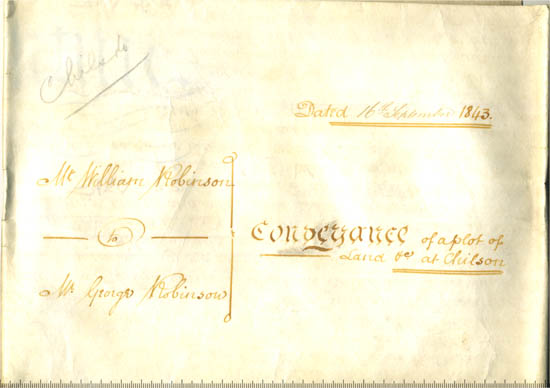 Chilson
Dated 16th September 1843.
Mr. William Robinson
to
Mr. George Robinson
Conveyance of a plot of
Land &c at Chilson